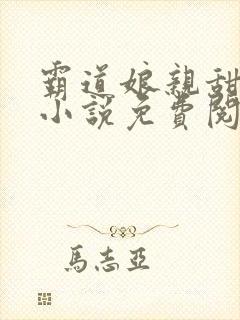 霸道娘親甜
小說免費閱
馬志亞